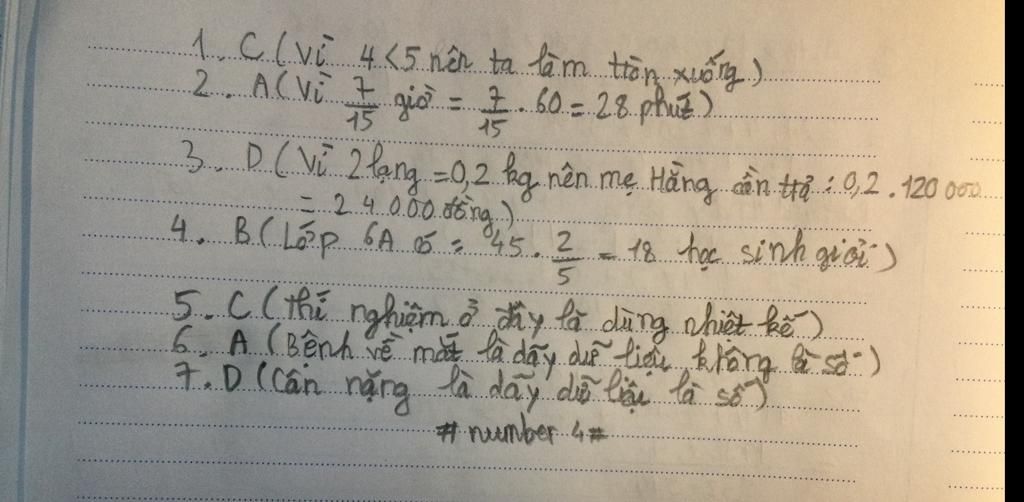 1. C (Vì 4 < 5 nên ta làm tròn xuống)
2. A (Vì 7/15 giờ = 7/15 . 60 = 28 phút)
3. D (Vì 2 lạng = 0,2 kg nên mẹ Hằng cần trả : 0,2 . 120 000
= 24 000 đồng)
4. B (Lớp 6A có = 45 . 2/5 = 18 học sinh giỏi)
5. C (thí nghiệm ở đây là dùng nhiệt kế)
6. A (Bệnh về mắt là dãy dữ liệu không là số)
7. D (Cân nặng là dãy dữ liệu là số)
# number 4 #